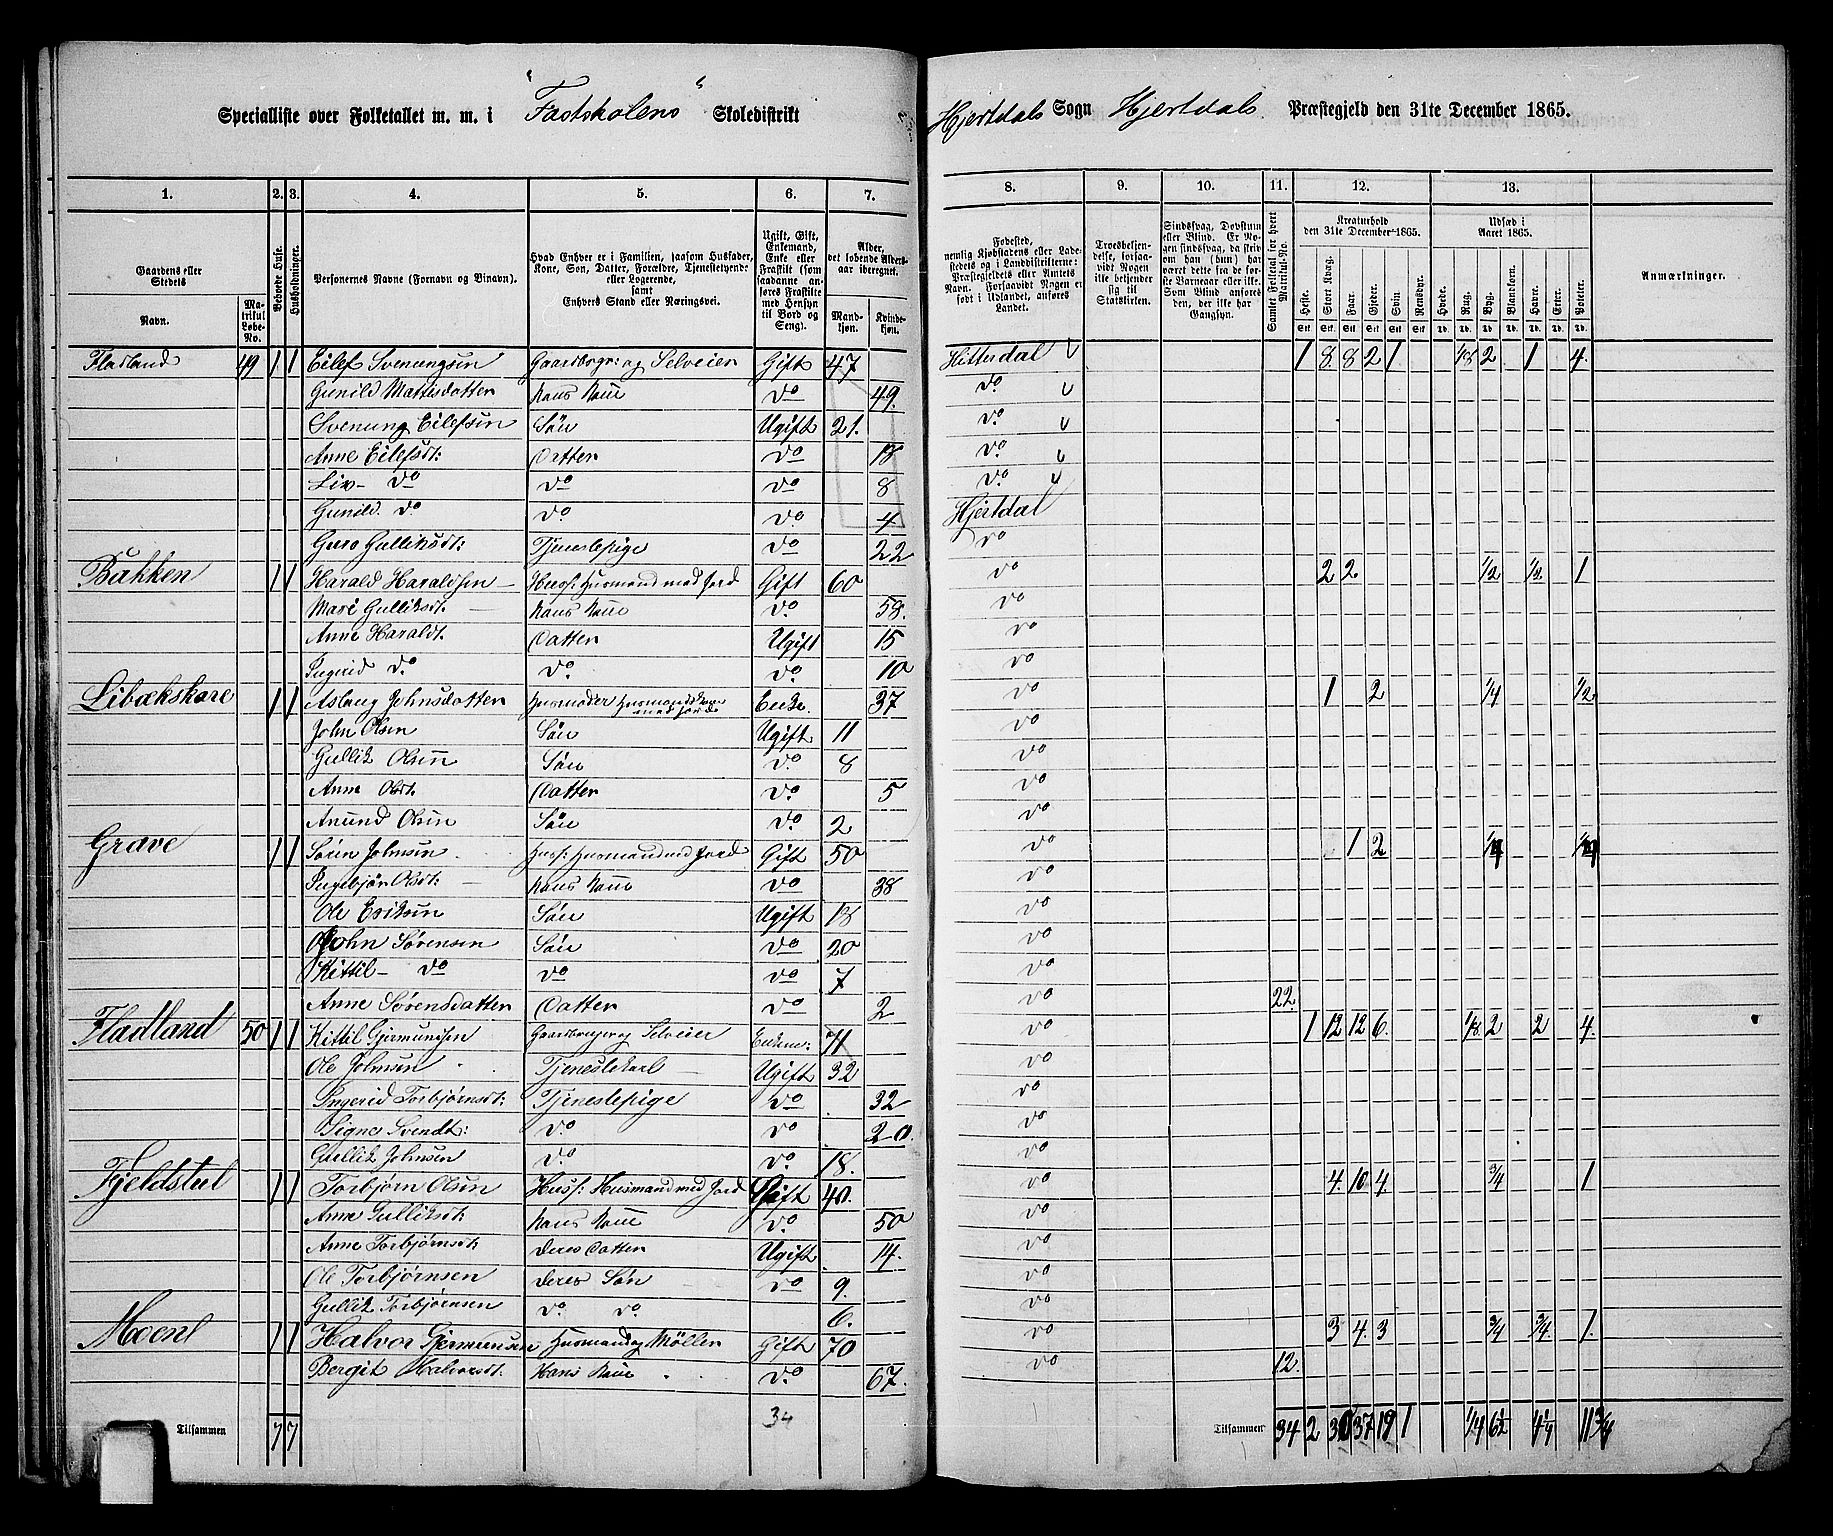 Specialliste over Folketallet m. m. i "Fastskolens" Skoledistrikt Hjertdals Sogn Hjertdals Præstegjeld den 31te December 1865.
1. 2. 3. 4. 5. 6. 7. 8. 9. 10. 11. 12. 13.
Gaardens eller Stedets Navn. Matrikul Løbe-No. Beboede Huse. Husholdninger. Personernes Navne (Fornavn og Binavn). Hvad Enhver er i Familien, saasom Husfader, Kone, Søn, Datter, Forældre, Tjenestetyende eller Logerende, samt Enhvers Stand eller Næringsvei. Ugift, Gift, Enkemand, Enke eller Fraskilt (som saadanne anføres Fraskilte med Hensyn til Bord og Seng). Alder, det løbende Aldersaar iberegnet. Mandkjøn. Kvindekjøn. Fødested, nemlig Kjøbstadens eller Ladestedets og i Landdistrikterne: Præstegjeldets eller Amtets Navn. Forsaavidt Nogen er født i Udlandet, anføres Landet. Troesbekjendelse, forsaavidt Nogen ikke bekjender sig til Statskirken. Sindssvag, Døvstum eller Blind. Er Nogen sindssvag, da skrives om han (hun) har været dette fra de første Barneaar eller ikke. Som Blind anføres den, der ikke har Gangsyn. Samlet Folketal for hvert Matrikul-No. Kreaturhold den 31te December 1865. Heste. Stort Kvæg. Faar. Gjeder. Svin. Rensdyr. Udsæd i Aaret 1865. Hvede. Rug. Byg. Blandkorn. Havre. Erter. Poteter. Anmærkninger.
Fladland 49 1 1 Eilef Svenungsen Gaardbrgr: og Selveier Gift 47 Hitterdal 1 8. 8 2 1 1/8 2 1 4.
Gunild Mattisdatter Hans Kone Do 49. Do
Svenung Eilefsen Søn Ugift 21. Do
Anne Eilefsdt: Datter Do 18 Do
Liv- Do Do Do 8 Do
Gunild. Do Do Do 4 Hjertdal
Guro Gulliksdt: Tjenestepige Do 22 Do
Bakken 1 1 Harald Haraldsen Husf: Husmand med Jord Gift 60 Do 2 2 1/2 1/2 1
Mari Gulliksdt. Hans Kone Do 58. Do
Anne Haraldt. Datter Ugift 15 Do
Ingerid Do Do Do 10 Do
Libækskare 1 1 Aslaug Johnsdatter Husmoder Husmandskone med Jord Enke. 37 Do 1 2 1/4 1/2
John Olsen Søn Ugift 11 Do
Gullik Olsen Søn Do 8 Do
Anne Olsdt. Datter Do 5 Do
Amund Olsen Søn Do 2 Do
Grave 1 1 Søren Johnsen Husf: Husmand med Jord Gift 50 Do 1 2 1/4 1/4
Ingebjør Olsdt: Hans Kone Do 38 Do
Ole Eriksen Søn Ugift 18 Do
John Sørensen Søn Do 20 Do
Kittil- Do Do Do 7 Do
Anne Sørensdatter Datter Do 2 Do 22.
Fladland 50 1 1 Kittil Gjermundsen Gaardbruger og Selveier Enkem: 71 Do 1 12 12 6. 1/8. 2 2 4.
Ole Johnsen Tjenestekarl Ugift 32 Do
Ingerid Torbjørnsdt: Tjenestepige Do 32 Do
Signe Svendt: Do Do 20. Do
Gullik Johnsen Do Do 18. Do
Fjeldstul 1 1 Torbjørn Olsen Husf: Husmand med Jord Gift 40. Do 4. 10. 4. 3/4 1
Anne Gulliksdt. Hans Kone Do 50 Do
Anne Torbjørnsdt: Deres Datter Ugift 14. Do
Ole Torbjørnsen Deres Søn Do 9. Do
Gullik Torbjørnsen Do Do 6. Do
Moene 1 1 Halvor Gjermundsen Husmand og Møller Gift 70 Do 3 4. 3 3/4 3/4. 1.
Bergit Halvorsdt. Hans Kone Do 67. Do 12.
Tilsammen 7 7 34 Tilsammen 34 2 30 37 19 1 1/4 6 1/2 4 1/4 11 3/4